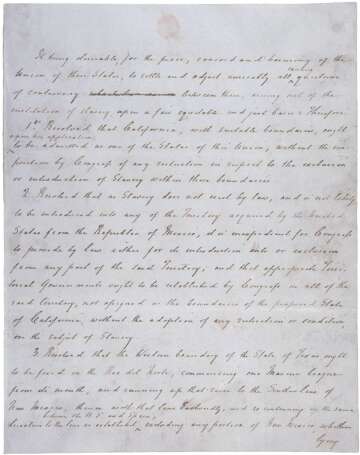 It being desirable, for the peace, concord and harmony of the
Union of these States, to settle and adjust amicably all existing questions
of controversy between them, arising out of the
institution of slavery, upon a fair equitable and just basis: Therefore
1st Resolved that California, with suitable boundaries, ought
upon her application
to be admitted as one of the States of this Union, without the im
position by Congress of any restriction in respect to the exclusion
or introduction of Slavery within those boundaries.
2. Resolved that as Slavery does not exist by law, and is not likely
to be introduced into any of the Territory acquired by the United
States from the Republic of Mexico, it is inexpedient for Congress
to provide by law, either for its introduction into or exclusion
from any part of the said Territory; and that appropriate Terri
torial Governments ought to be established by Congress in all of the
said territory, not assigned as the boundaries of the proposed State
of California, without the adoption of any restriction or condition
on the subject of Slavery.
3. Resolved that the Western boundary of the State of Texas ought
to be fixed on the Rio del Norte, commencing one Marine league
from its mouth, and running up that river to the Southern line of
New Mexico; thence with that line Eastwardly, and so continuing in the same
direction to the line as established between the U.S. and Spain, excluding any portion of New Mexico whether
lying